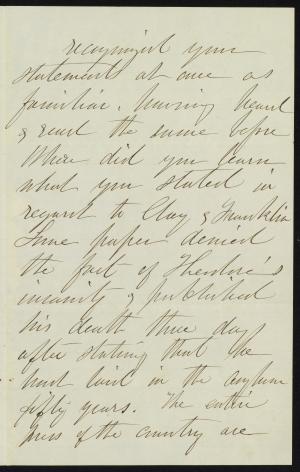 recognized your
statements at once as
familiar. Having heard
& read the same before
Where did you learn
what you stated in
regard to Clay & Franklin
Some paper denied
the fact of Theodore's
insanity & published
his death three day
after stating that he
had lived in the asylum
fifty years. The entire
press of the country are